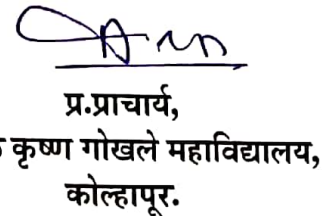 प्र.प्राचार्य,
कृष्ण गोखले महाविद्यालय,
कोल्हापूर.